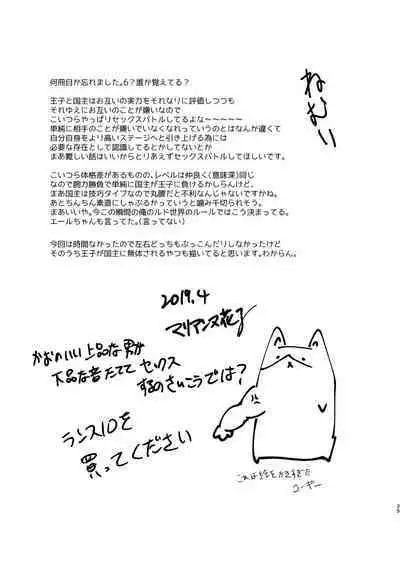 何冊目か忘れました。6？誰か覚えてる？
ねむい
王子と国主はお互いの実力をそれなりに評価しつつも
それゆえにお互いのことが嫌いなので
こいつらやっぱりセックスバトルしてるよな〜〜〜〜〜
単純に相手のことが嫌いでいなくなれっていうのとはなんか違くて
自分自身をより高いステージへと引き上げる為には
必要な存在として認識してるとかしてないとか
まあ難しい話はいいからとりあえずセックスバトルしてほしいです。
こいつら体格差があるものの、レベルは仲良く(意味深)同じ
なので腕力勝負で単純に国主が王子に負けるかしらんけど、
まあ国主は技巧タイプなので丸腰だと不利なんじゃないですかね。
あとちんちん素直にしゃぶるかっていうと噛み千切られそう。
まあいいや。今この瞬間の俺のルド世界のルールではこう決まってる。
エールちゃんも言ってた。(言ってない)
今回は時間なかったので左右どっちもぶっこんだりしなかったけど
そのうち王子が国主に無体されるやつも描いてると思います。わからん。
2019.4
マリアンヌ花子
かおのいい上品な男が
下品な音たてて セックス
するのさいこうでは?
ランス10を
買ってください
これは絵をかきすぎた
コーギー
25